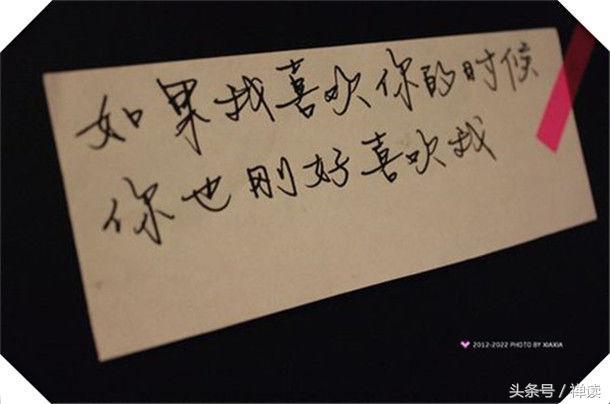 如果我喜欢你的时候
你也刚好喜欢我
2012-2022 PHOTO BY XIAXIA
头条号 / 禅读